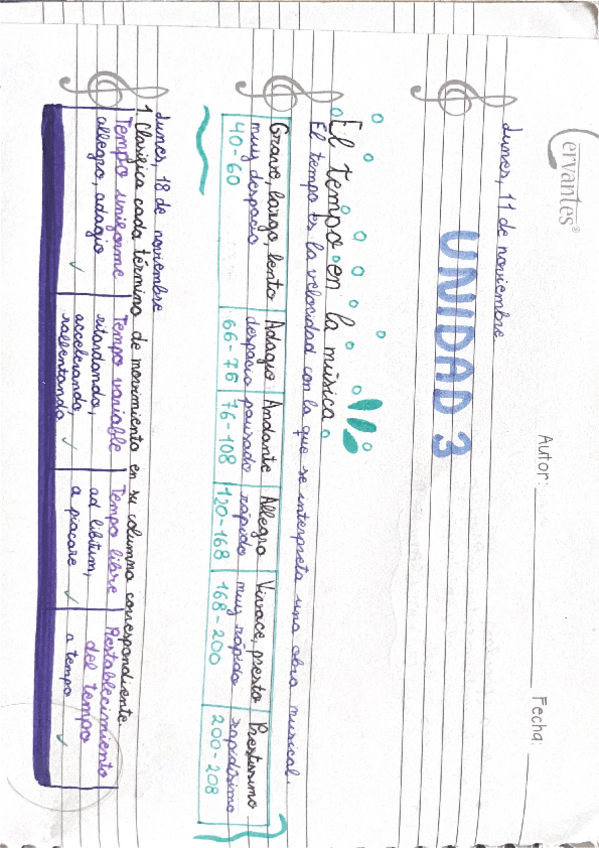 Cervantes®
Autor:
Fecha:
Lunes, 11 de noviembre
UNIDAD 3
El tempo en la música
El tempo es la velocidad con la que se interpreta una obra musical.
Grave, largo, lento | Adagio | Andante | Allegro | Vivace, presto | Prestissimo
muy despacio | despacio | pausado | rápido | muy rápido | rapidísimo
40-60 | 66-76 | 76-108 | 120-168 | 168-200 | 200-208
Lunes, 18 de noviembre
1. Clasifica cada término de movimiento en su columna correspondiente.
Tempo uniforme | Tempo variable | Tempo libre | Restablecimiento
allegro, adagio | ritardando, | ad libitum, | del tempo
accelerando, | a piacere | a tempo
rallentando